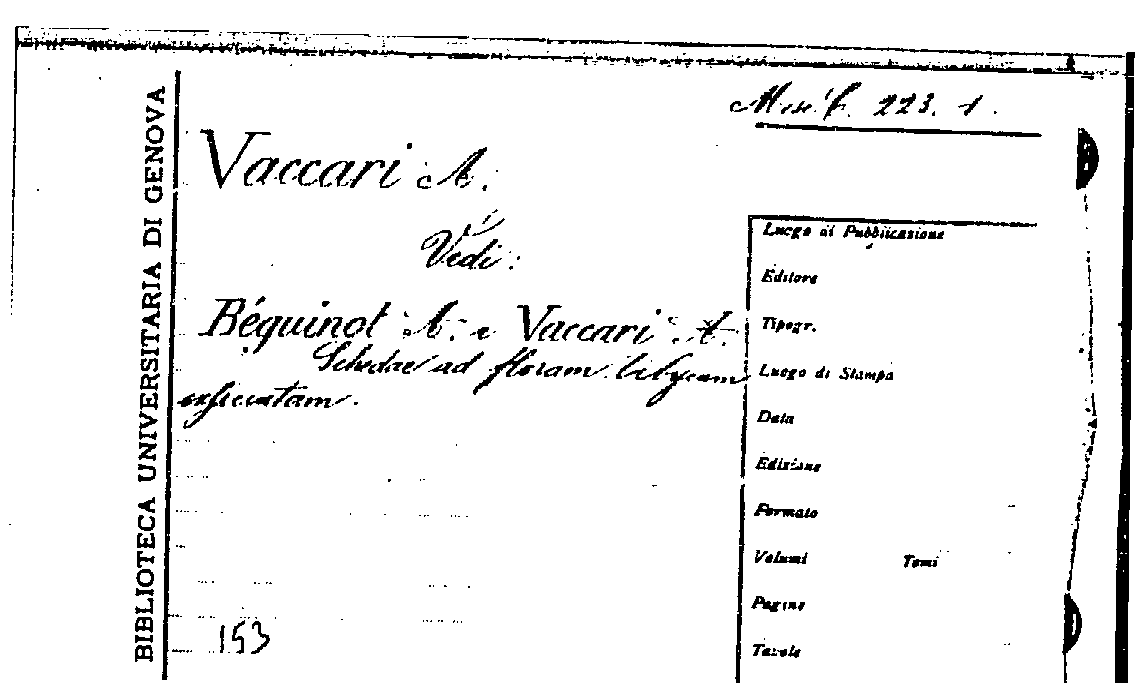 BIBLIOTECA UNIVERSITARIA DI GENOVA
223. 1.
Vaccari A.
Vedi:
Béguinot A. e Vaccari A.
Schedae ad floram libycam
exsiccatam.
153
Luogo di Pubblicazione
Editore
Tipogr.
Luogo di Stampa
Data
Edizione
Formato
Volumi Tomi
Pagine
Tavole